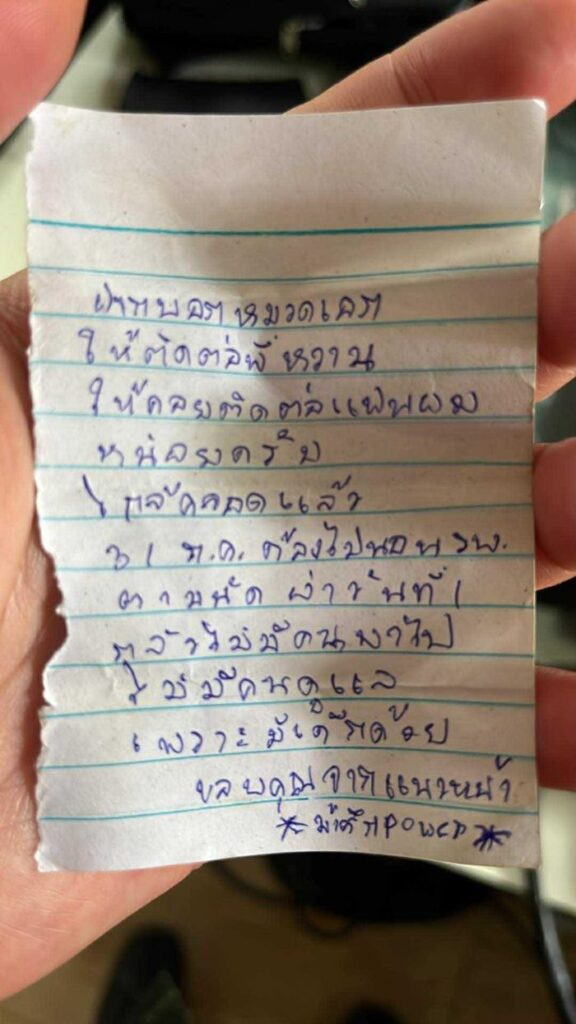 ฝากบอกหมวดเอก
ให้ติดต่อพี่หวาน
ให้คอยติดต่อแฟนผม
หน่อยครับ
ใกล้คลอดแล้ว
31 ก.ค. ต้องไปนอน รพ.
ตามนัด ผ่าวันที่ 1
กลัวไม่มีคนพาไป
ไม่มีคนดูแล
เพราะมีเด็กด้วย
ขอบคุณจากแนวหน้า